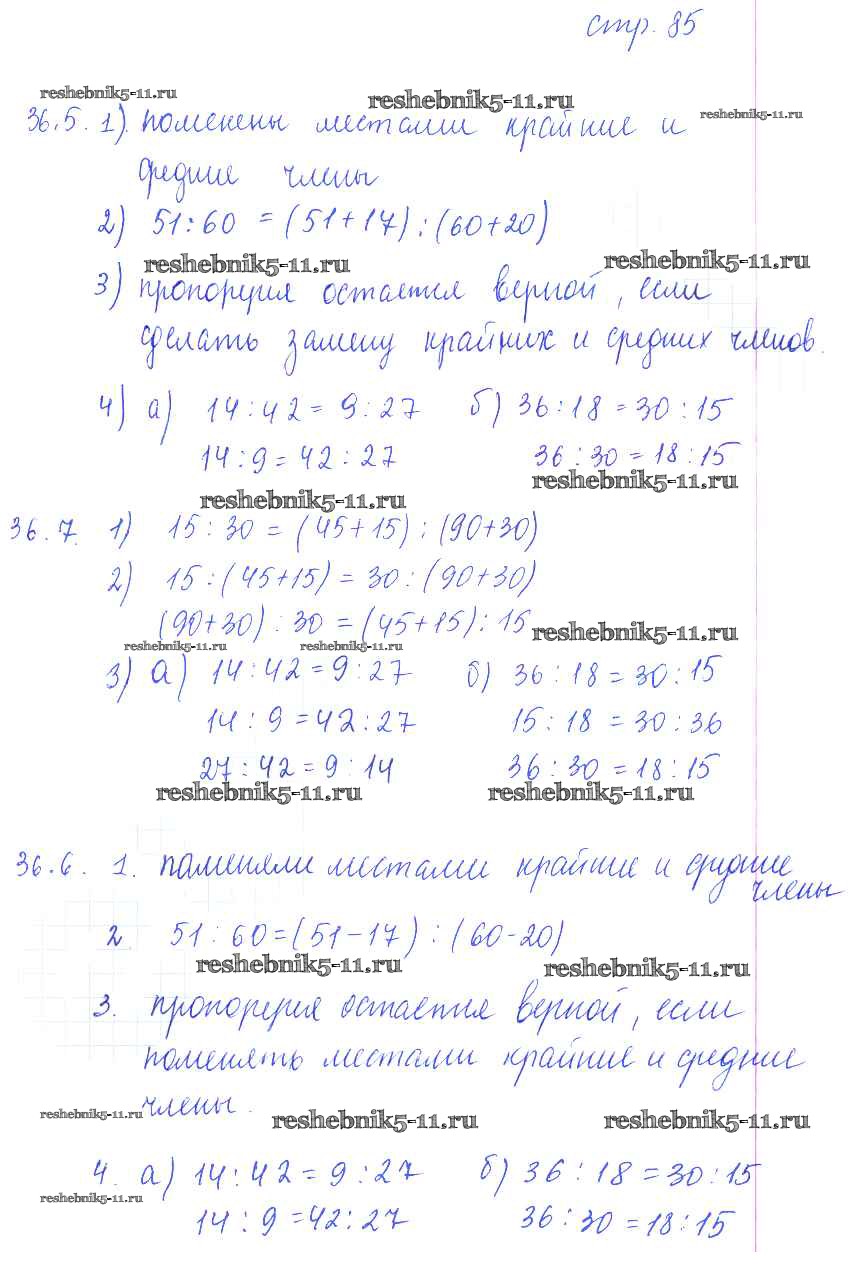 стр. 85
reshebnik5-11.ru
reshebnik5-11.ru
reshebnik5-11.ru
36.5. 1) поменены местами крайние и
средние члены
2) 51:60 = (51+17) : (60+20)
reshebnik5-11.ru
reshebnik5-11.ru
3) пропорция остается верной, если
сделать замену крайних и средних членов.
4) а) 14:42 = 9:27 б) 36:18 = 30:15
14:9 = 42:27 36:30 = 18:15
reshebnik5-11.ru
reshebnik5-11.ru
36.7. 1) 15:30 = (45+15) : (90+30)
2) 15:(45+15) = 30:(90+30)
(90+30):30 = (45+15):15
reshebnik5-11.ru
reshebnik5-11.ru
reshebnik5-11.ru
3) а) 14:42 = 9:27 б) 36:18 = 30:15
14:9 = 42:27 15:18 = 30:36
27:42 = 9:14 36:30 = 18:15
reshebnik5-11.ru
reshebnik5-11.ru
36.6. 1. поменяли местами крайние и средние
члены
2 51:60 = (51-17) : (60-20)
reshebnik5-11.ru
reshebnik5-11.ru
3. пропорция остается верной, если
поменять местами крайние и средние
члены.
reshebnik5-11.ru
reshebnik5-11.ru
reshebnik5-11.ru
4. а) 14:42 = 9:27 б) 36:18 = 30:15
reshebnik5-11.ru
14:9 = 42:27 36:30 = 18:15